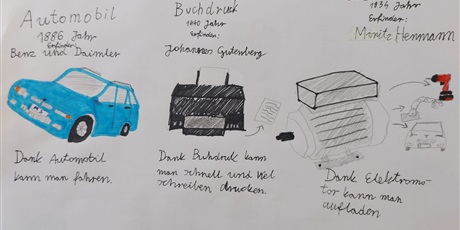 Automobil
1886 Jahr
Erfinder:
Benz und Daimler
Dank Automobil
kann man fahren.
Buchdruck
1440 Jahr
Erfinder:
Johannes Gutenberg
Dank Buhdruck kann
man schnell und viel
schreiben drucken.
1834 Jahr
Erfinder:
Moritz Hermann
Dank Elektromo-
tor kann man
aufladen